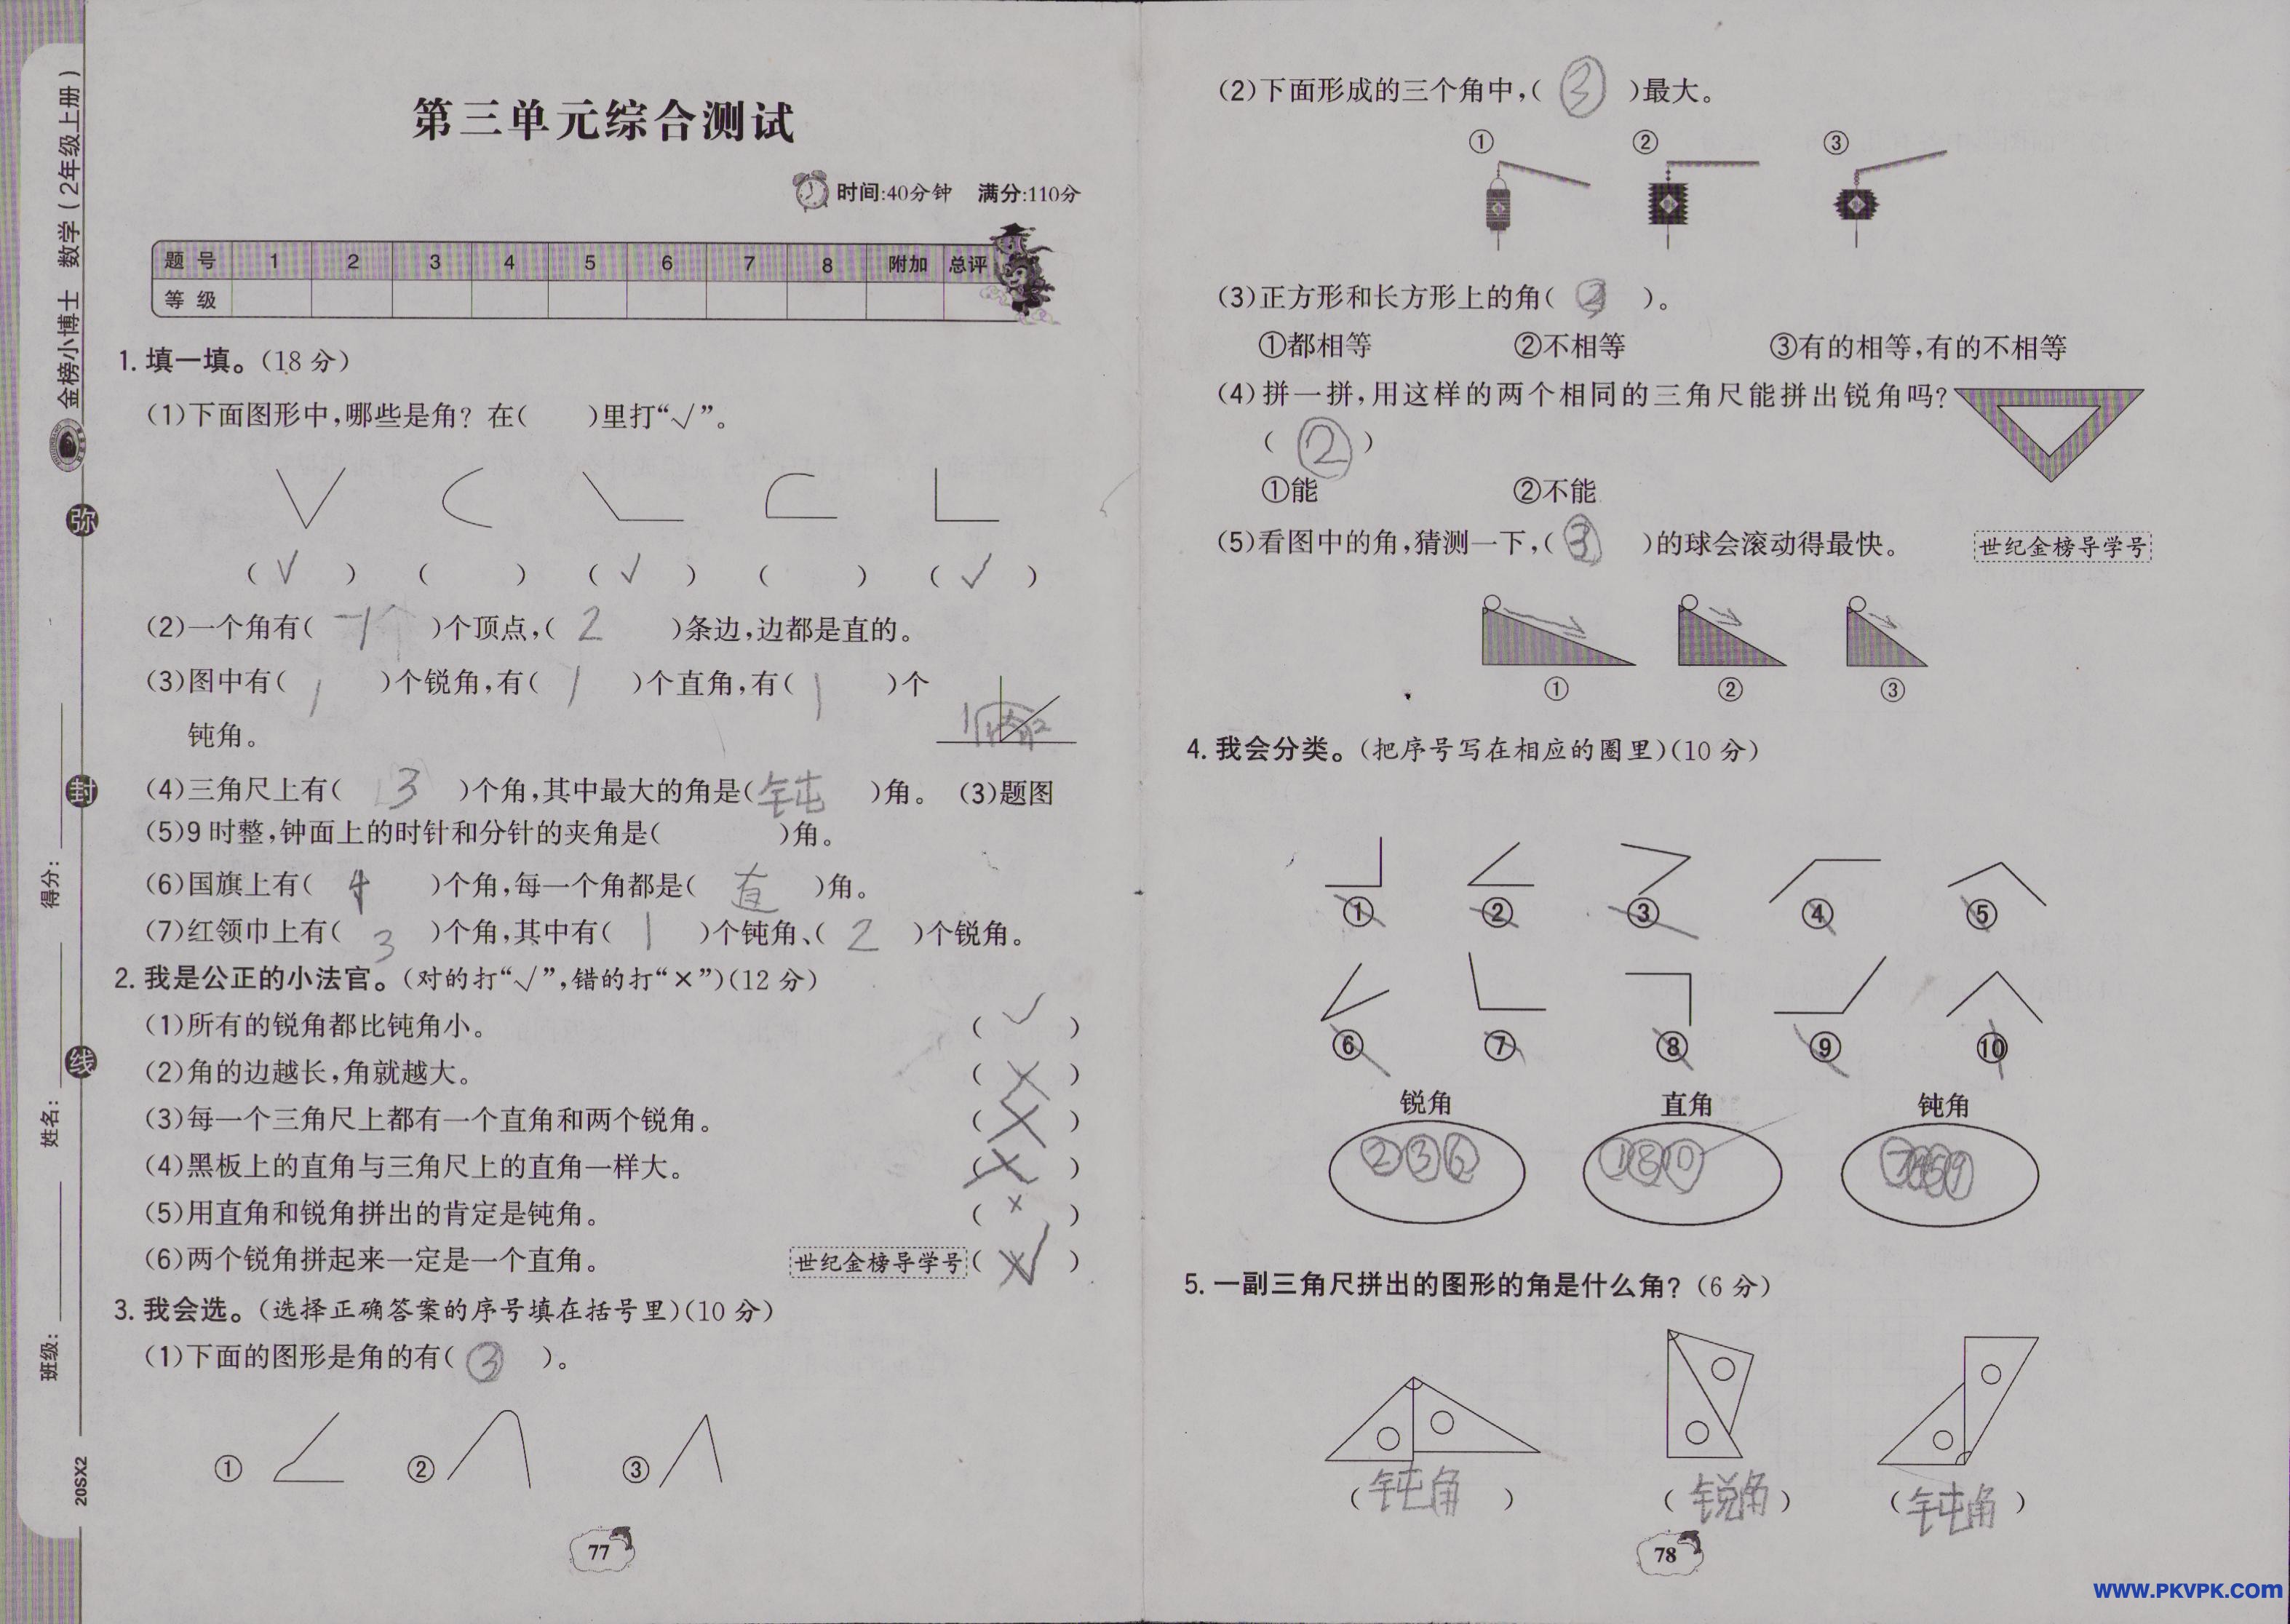 金榜小博士 数学(2年级上册)
弥
封
线
得分:
姓名:
班级:
20SX2
第三单元综合测试
时间:40分钟 满分:110分
题号 1 2 3 4 5 6 7 8 附加 总评
等级
1.填一填。(18分)
(1)下面图形中,哪些是角?在( )里打“√”。
(√) ( ) (√) ( ) (√)
(2)一个角有( 一个 )个顶点,( 2 )条边,边都是直的。
(3)图中有( 1 )个锐角,有( 1 )个直角,有( 1 )个
钝角。
(4)三角尺上有( 3 )个角,其中最大的角是( 钝 )角。 (3)题图
(5)9时整,钟面上的时针和分针的夹角是( )角。
(6)国旗上有( 4 )个角,每一个角都是( 直 )角。
(7)红领巾上有( 3 )个角,其中有( 1 )个钝角、( 2 )个锐角。
2.我是公正的小法官。(对的打“√”,错的打“×”)(12分)
(1)所有的锐角都比钝角小。 (√)
(2)角的边越长,角就越大。 (×)
(3)每一个三角尺上都有一个直角和两个锐角。 (×)
(4)黑板上的直角与三角尺上的直角一样大。 (×)
(5)用直角和锐角拼出的肯定是钝角。 (×)
(6)两个锐角拼起来一定是一个直角。 世纪金榜导学号( )
3.我会选。(选择正确答案的序号填在括号里)(10分)
(1)下面的图形是角的有( ③ )。
① ② ③
77
(2)下面形成的三个角中,( ③ )最大。
① ② ③
(3)正方形和长方形上的角( )。
①都相等 ②不相等 ③有的相等,有的不相等
(4)拼一拼,用这样的两个相同的三角尺能拼出锐角吗?
( ② )
①能 ②不能
(5)看图中的角,猜测一下,( ③ )的球会滚动得最快。 世纪金榜导学号
① ② ③
4.我会分类。(把序号写在相应的圈里)(10分)
① ② ③ ④ ⑤
⑥ ⑦ ⑧ ⑨ ⑩
锐角 直角 钝角
②③⑥ ①⑧⑩ ⑦④⑤⑨
5.一副三角尺拼出的图形的角是什么角?(6分)
(钝角) (锐角) (钝角)
78
www.PKVPK.com